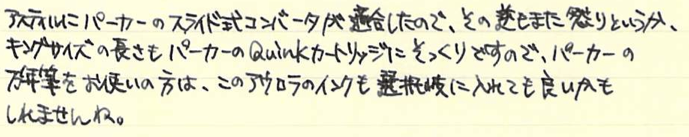 アスティルにパーカーのスライド式コンバータが適合したので、その逆もまた然りというか、
キングサイズの長さもパーカーのQuinkカートリッジにそっくりですので、パーカーの
万年筆をお使いの方は、このアウロラのインクも選択肢に入れても良いかも
しれませんね。